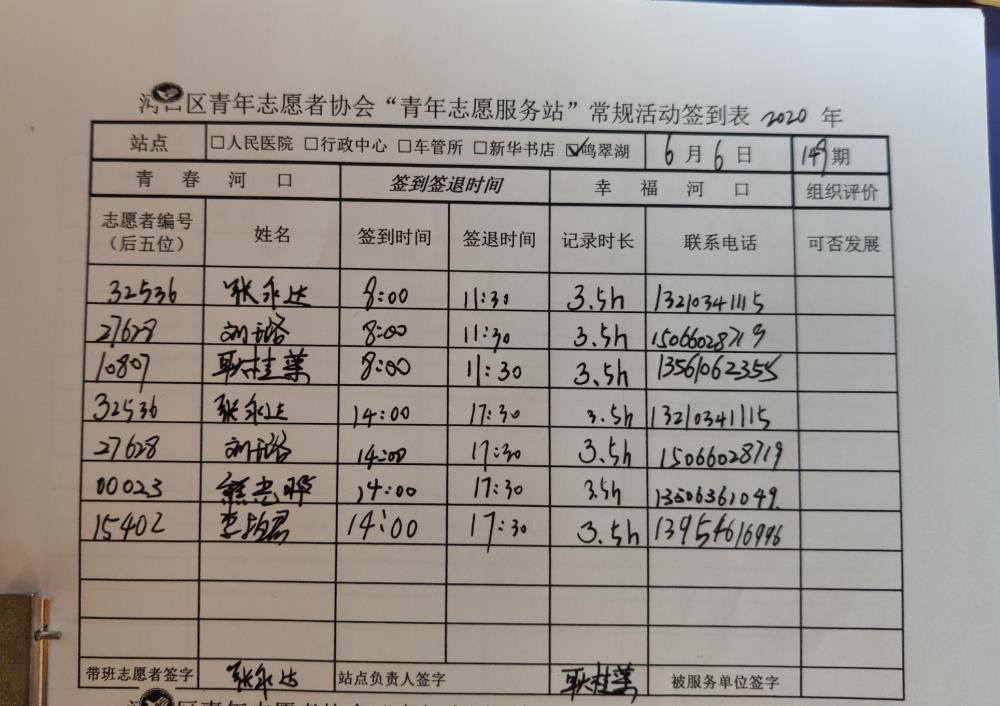 河口区青年志愿者协会“青年志愿服务站”常规活动签到表 2020 年
站点 □人民医院 □行政中心 □车管所 □新华书店 ☑鸣翠湖 6月6日 149期
青春河口 签到签退时间 幸福河口 组织评价
志愿者编号（后五位） 姓名 签到时间 签退时间 记录时长 联系电话 可否发展
32536 张永达 8:00 11:30 3.5h 13210341115
27628 刘 8:00 11:30 3.5h 15066028719
10807 耿桂英 8:00 11:30 3.5h 13561062355
32536 张永达 14:00 17:30 3.5h 13210341115
27628 刘 14:00 17:30 3.5h 15066028719
00023 14:00 17:30 3.5h 13506361049
15402 李 14:00 17:30 3.5h 13954616996
带班志愿者签字 张永达 站点负责人签字 耿桂英 被服务单位签字
区青年志愿者协会